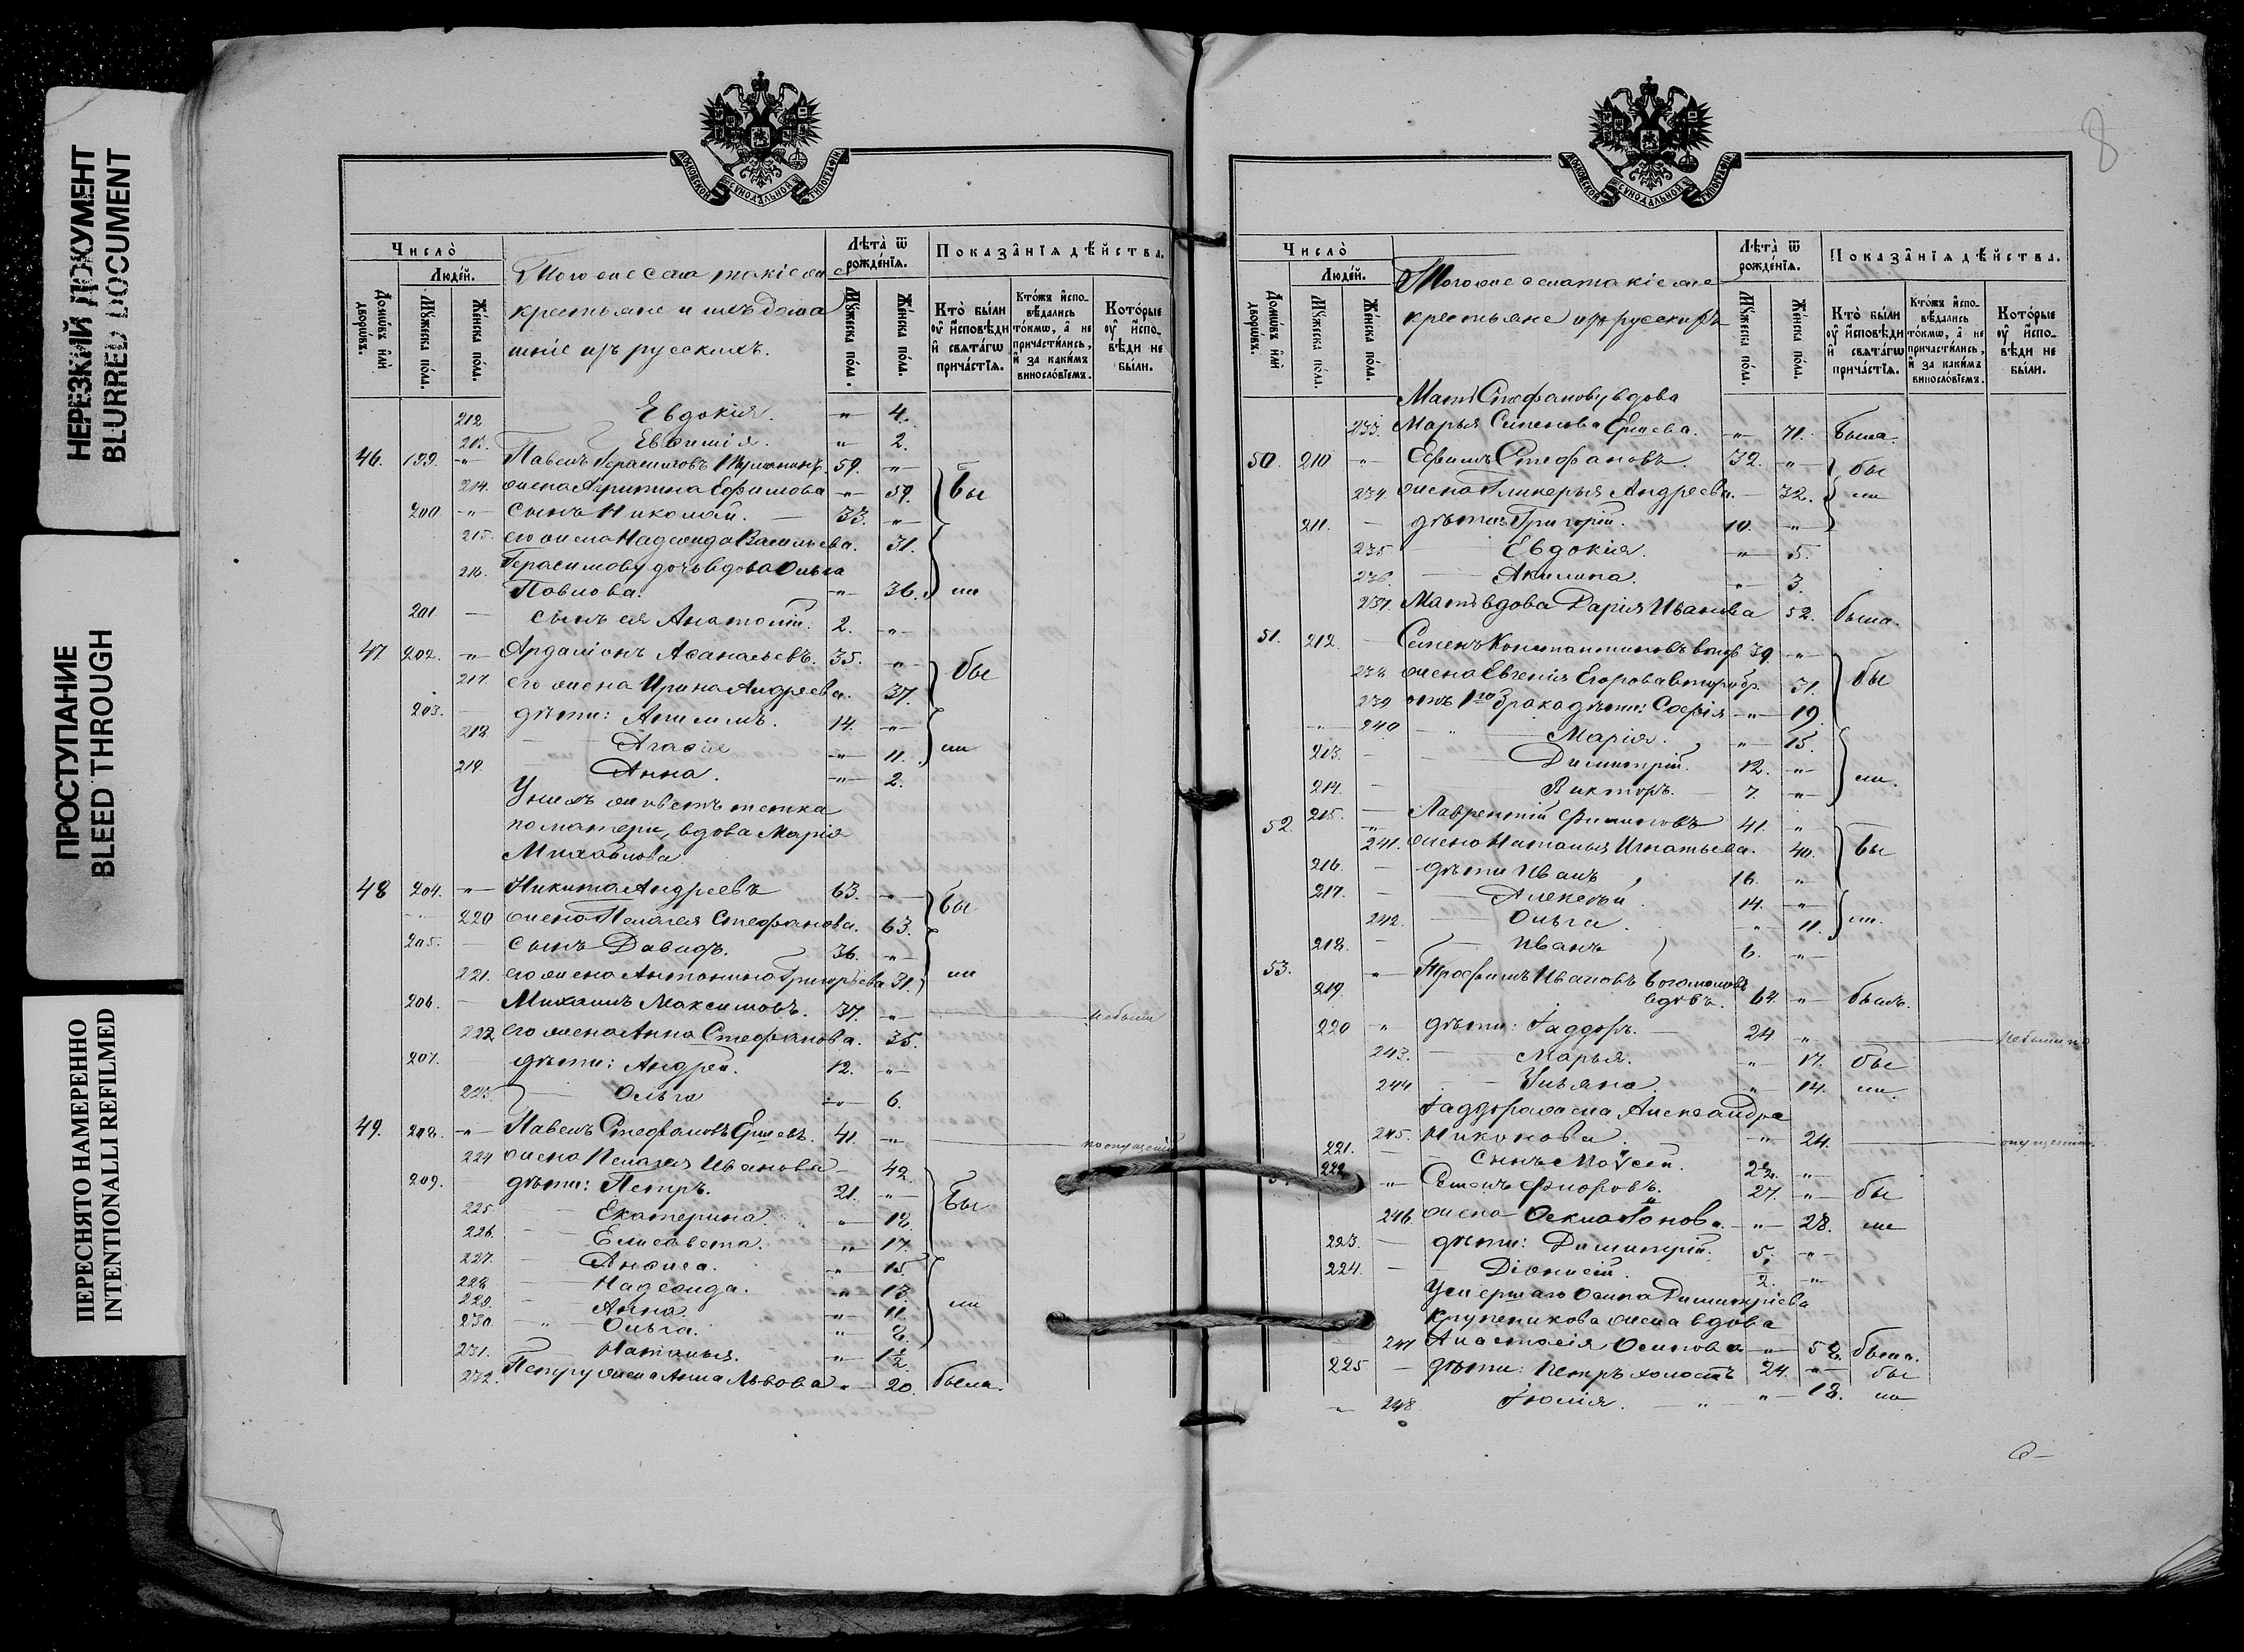 НЕРЕЗКИЙ ДОКУМЕНТ
BLURRED DOCUMENT
ПРОСТУПАНИЕ
BLEED THROUGH
ПЕРЕСНЯТО НАМЕРЕННО
INTENTIONALLI REFILMED
МОСКОВСКОЙ СѴНОДАЛЬНОЙ ТИПОГРАФІИ
Число̀
Людѐй.
Домѡ́въ и҆лѝ дворѡ́въ.
Мꙋ́жеска по́ла.
Же́нска по́ла.
Того же села такіе же
крестьяне и ихъ дома
шніе изъ русскихъ.
Лѣта̀ ѿ рожде́нїѧ.
Мꙋ́жеска по́ла.
Же́нска по́ла.
Показа̑нїѧ дѣ́йства.
Кто̀ бы́ли ᲂу҆ и҆сповѣ́ди и҆ свѧта́гѡ прича́стїѧ.
Кто́жъ и҆спо- вѣ́дались то́кмѡ, а҆ не причасти́лись, и҆ за каки́мъ винослѡ́вїемъ.
Кото́рые ᲂу҆ и҆спо- вѣ́ди не бы́ли.
212 Евдокія. " 4.
213. Евѳимія. " 2.
46. 199. " Павелъ Герасимовъ 59. "
214. жена Агрипина Ефимова " 59. бы
200 " сынъ Николай. 33. "
215. его жена Надежда Васильева. 31.
216. Герасимову дочь вдова Ольга
Павлова. " 36. ли
201. сынъ ея Анатолій. 2. "
47. 202. " Ардаліонъ Аѳанасьевъ. 35. "
217. его жена Ирина Андреева. 37. бы
203. дѣти: 14. "
218. Агаѳія " 11. ли
219. Анна. " 2.
У нихъ живетъ тетка
по матери, вдова Марія
Михайлова
48 204. " Никита Андреевъ 63. "
220 жена Пелагея Стефанова. 63. бы
205. сынъ Давидъ. 36. "
221. его жена Антонина Григорьева 31. ли
206. Михаилъ Максимовъ. 37. " небыли
222 его жена Анна Стефанова. 35.
207. дѣти: Андрей. 12. "
223. Ольга " 6.
49. 208. " Павелъ Стефановъ Ершевъ. 41. " по опущенію
224 жена Пелагея Иванова 42.
209. дѣти: Петръ. 21. " бы
225 Екатерина. " 18.
226. Елисавета. " 17.
227. Анѳиса. " 15.
228 Надежда. " 13.
229. Анна. " 11. ли
230. Ольга. " 8.
231. Наталья. " 1½.
232. Петру жена Анна Львова " 20. была.
8
МОСКОВСКОЙ СѴНОДАЛЬНОЙ ТИПОГРАФІИ
Число̀
Людѐй.
Домѡ́въ и҆лѝ дворѡ́въ.
Мꙋ́жеска по́ла.
Же́нска по́ла.
Того же села такіе же
крестьяне изъ русскихъ
Лѣта̀ ѿ рожде́нїѧ.
Мꙋ́жеска по́ла.
Же́нска по́ла.
Показа̑нїѧ дѣ́йства.
Кто̀ бы́ли ᲂу҆ и҆сповѣ́ди и҆ свѧта́гѡ прича́стїѧ.
Кто́жъ и҆спо- вѣ́дались то́кмѡ, а҆ не причасти́лись, и҆ за каки́мъ винослѡ́вїемъ.
Кото́рые ᲂу҆ и҆спо- вѣ́ди не бы́ли.
Мать Стефанову вдова
233. Марья Семенова Ершева. " 71. была.
50. 210 " Ефимъ Стефановъ. 32. " бы
234. жена Гликерья Андреева. 32. ли
211. дѣти: Григорій. 10. "
235 Евдокія. " 5.
236. Акилина. " 3.
237. Мать вдова Дарія Иванова 52. была.
51. 212. Семенъ Константиновъ 39. "
238 жена Евгенія Егорова втор. бр. 31. бы
239 отъ 1го брака дѣти: Софія " 19.
240 Марія. " 15.
213. Димитрій. 12. "
214. Викторъ. 7. " ли.
52. 215. " Лаврентій Филиповъ 41. "
241. жена Наталья Игнатьева. 40. бы
216. дѣти Иванъ 16. "
217. Алексѣй. 14. "
242. Ольга. " 11. ли.
218. Иванъ 6. "
53. 219. " Трофимъ Ивановъ Богомоловъ
вдовъ. 64. " былъ.
220 " дѣти: Ѳаддей. 24 " небыли
243. Марья. " 17. бы
244 Ульяна. " 14. ли.
Ѳаддея жена Александра
245. Никонова. " 24. опущенію
221. сынъ Мовсей. 2½. "
222 " Семенъ Флоровъ. 27. " бы
246. жена Ѳекла " 28. ли
223. дѣти: Димитрій. 5. "
224. Діонисій. ½. "
Умершаго Осипа Димитріева
Крупенникова жена вдова
247 Анастасія Осипова " 58. была.
225 дѣти: Петръ холостъ 24. " бы
248. Іюлія. " 18. ли